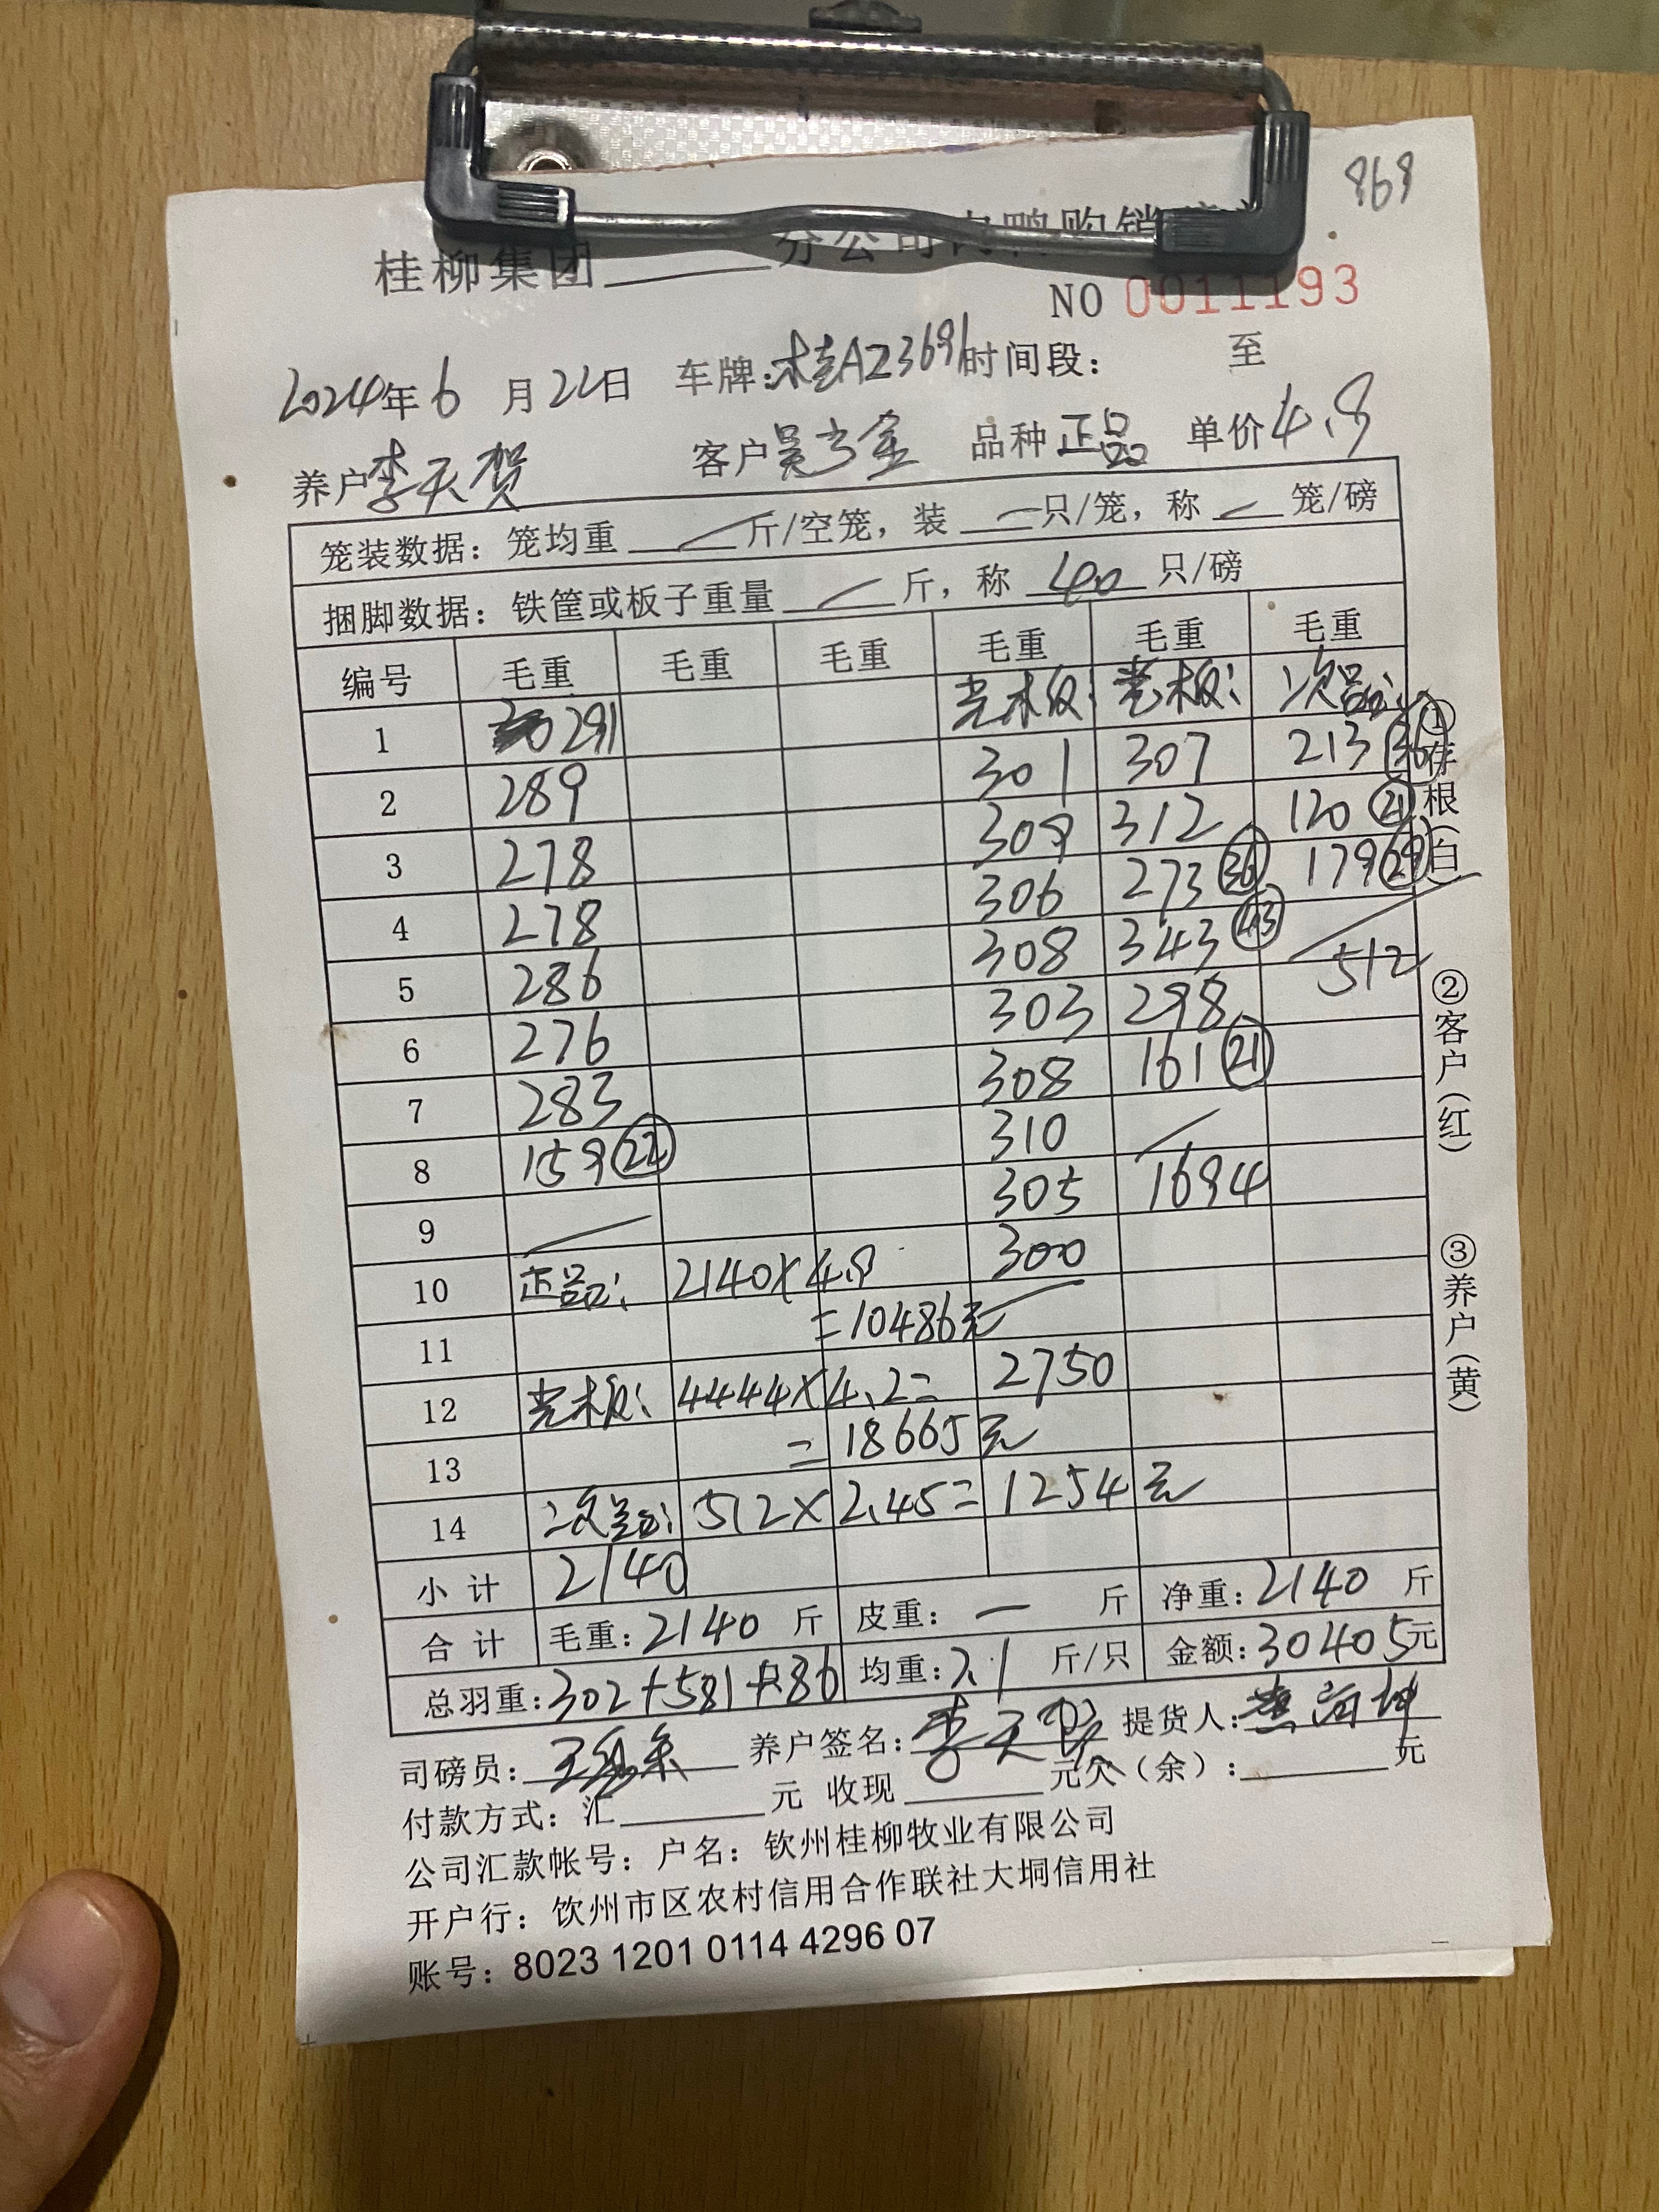 868
桂柳集团____分公司肉鸭购销
NO 0011193
2024年6月22日 车牌:桂AZ3696 时间段: 至
养户李天贺 客户吴 金 品种 正品 单价4.9
笼装数据:笼均重____斤/空笼,装____只/笼,称____笼/磅
捆脚数据:铁筐或板子重量____斤,称 40 只/磅
编号 毛重 毛重 毛重 毛重 毛重 毛重
光板: 光板: 次品:
1 291 301 307 213 36
2 289 309 312 120 21
3 278 306 273 36 179 29
4 278 308 343 43
5 286 303 298 512
6 276 308 161 21
7 283 310
8 159 22 305 1694
9 300
10 正品: 2140×4.9
11 =10486元
12 光板: 4444×4.2= 2750
13 =18665元
14 次品: 512×2.45= 1254元
小计 2140
合计 毛重:2140 斤 皮重: — 斤 净重:2140 斤
总羽重:302+581+86 均重:7.1 斤/只 金额:30405元
司磅员: 养户签名:李天贺 提货人:
付款方式:汇____元 收现____元欠(余):____元
公司汇款帐号:户名:钦州桂柳牧业有限公司
开户行:钦州市区农村信用合作联社大垌信用社
账号:8023 1201 0114 4296 07
①存根(白)
②客户(红)
③养户(黄)